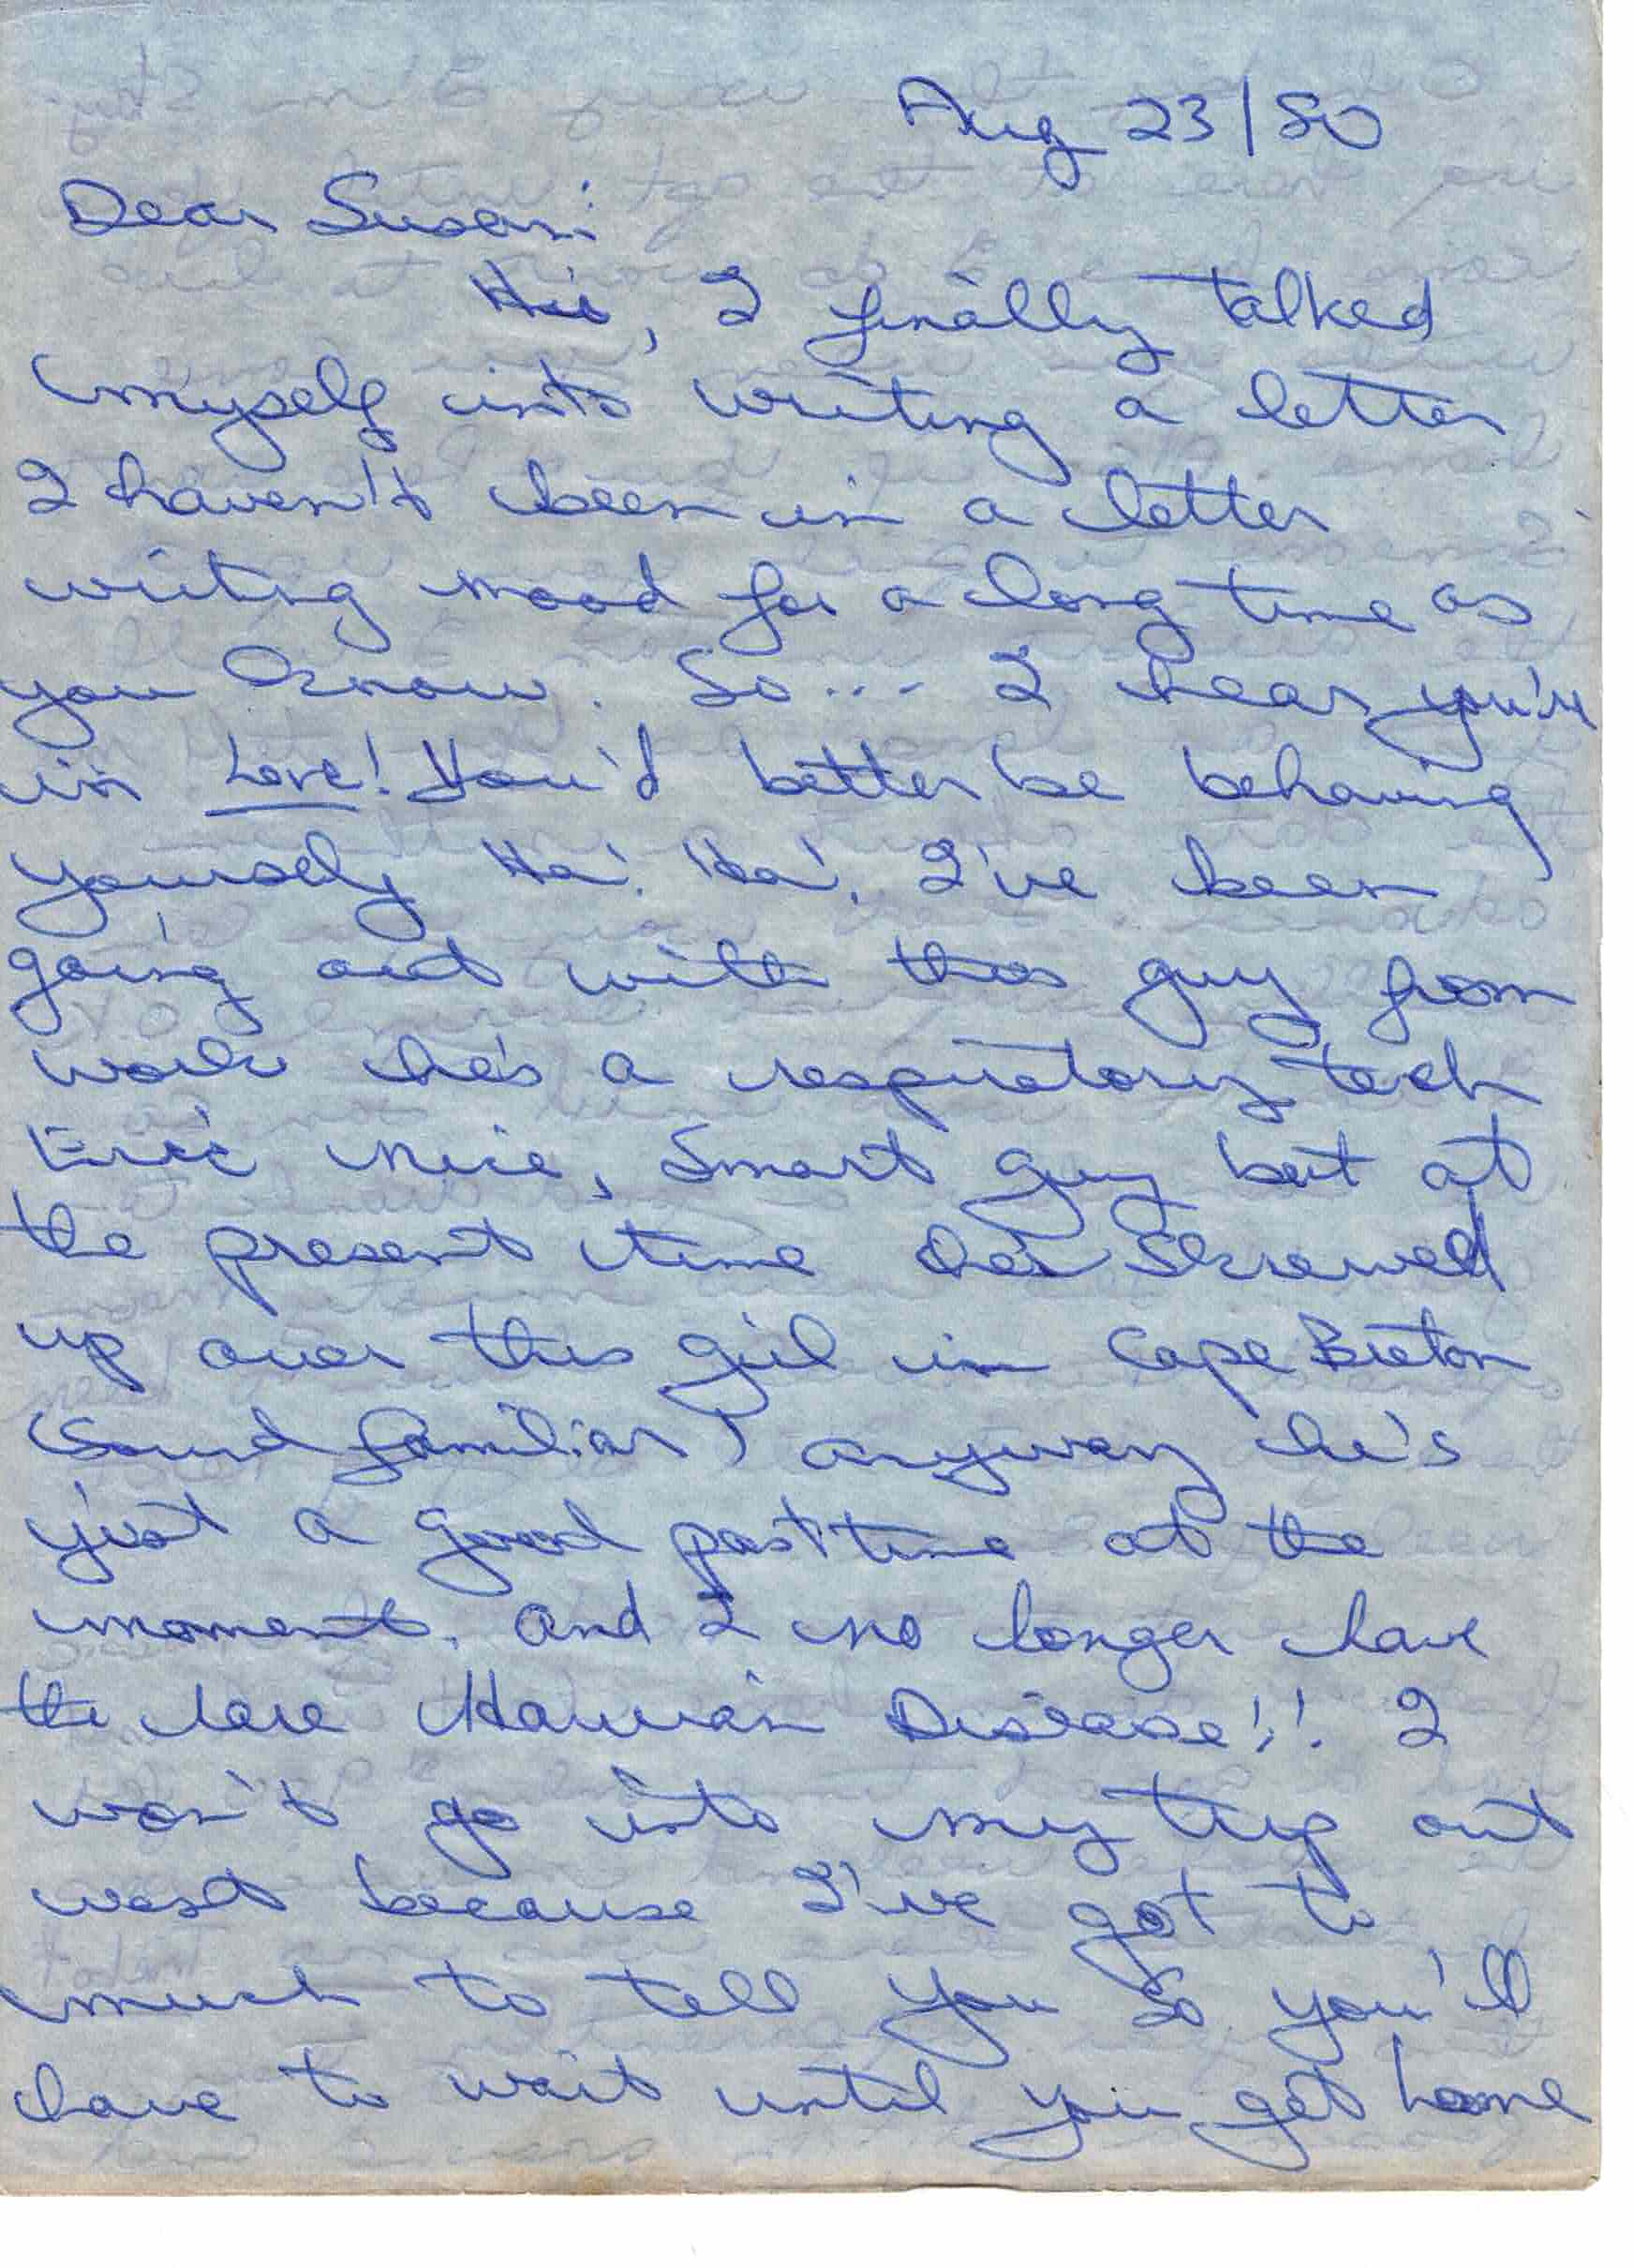 Aug 23/80
Dear Susan:
Hi, I finally talked
myself into writing a letter
I haven't been in a letter
writing mood for a long time as
you know. So... I hear you're
in Love! You'd better be behaving
yourself Ha! Ha!. I've been
going out with this guy from
work he's a respiratory tech
Eric nice, smart guy but at
the present time he's screwed
up over this girl in Cape Breton
(Sound familiar) anyway he's
just a good past time at the
moment. And I no longer have
the rare Hawaian Disease!! I
won't go into my trip out
west because I've got to
much to tell you so you'll
have to wait until you get home